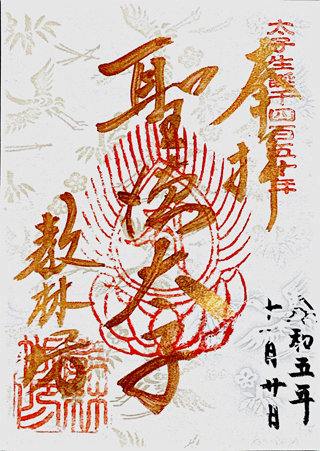 太子生誕千四百五十年
奉拝
聖徳太子
教林坊
令和五年
月廿日